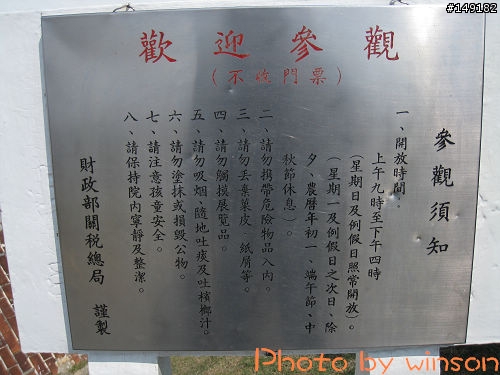 #149182
歡迎參觀
（不收門票）
參觀須知
一、開放時間：
上午九時至下午四時
（星期日及例假日照常開放）。
（星期一及例假日之次日、除
夕、農曆年初一、端午節、中
秋節休息）。
二、請勿携帶危險物品入內。
三、請勿丢棄菓皮、紙屑等。
四、請勿觸摸展覽品。
五、請勿吸烟、隨地吐痰及吐檳榔汁。
六、請勿塗抹或損毀公物。
七、請注意孩童安全。
八、請保持院內寧靜及整潔。
財政部關稅總局 謹製
Photo by winson